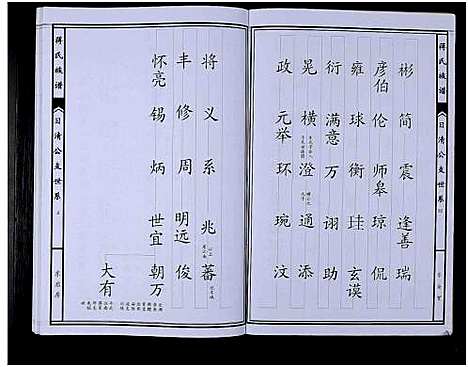 蒋氏族谱
日清公支世卷
彬 简 震 逢善 瑞
彦伯 伦 师皋 琼 侃
雍 球 衡 珪 玄谟
衍 满意 万 诩 助
晃 横 澄 通 添
政 元举 环 琬 汶
将 义 系 兆 蕃
丰 修 周 明远 俊
怀亮 锡 炳 世宜 朝万
大有
蒋氏族谱
日清公支世卷